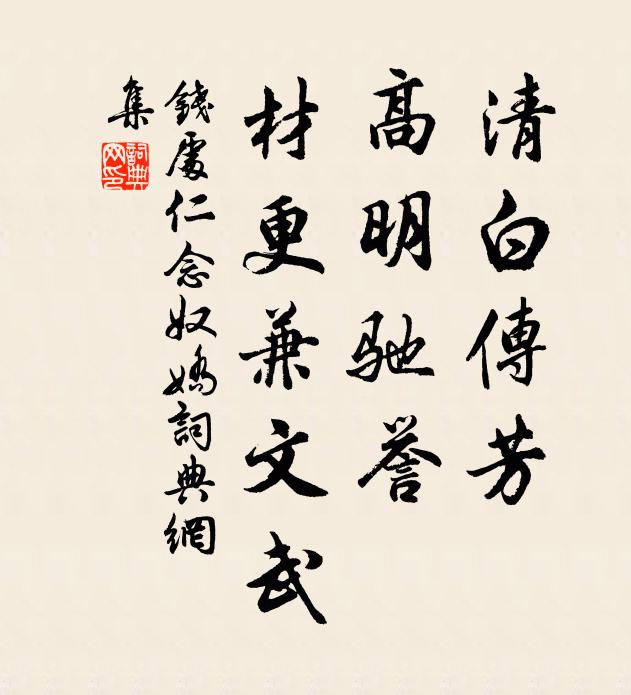 清白傳芳
高明驰誉
材更兼文武
錢處仁念奴嬌詞典網
集
詞典網印